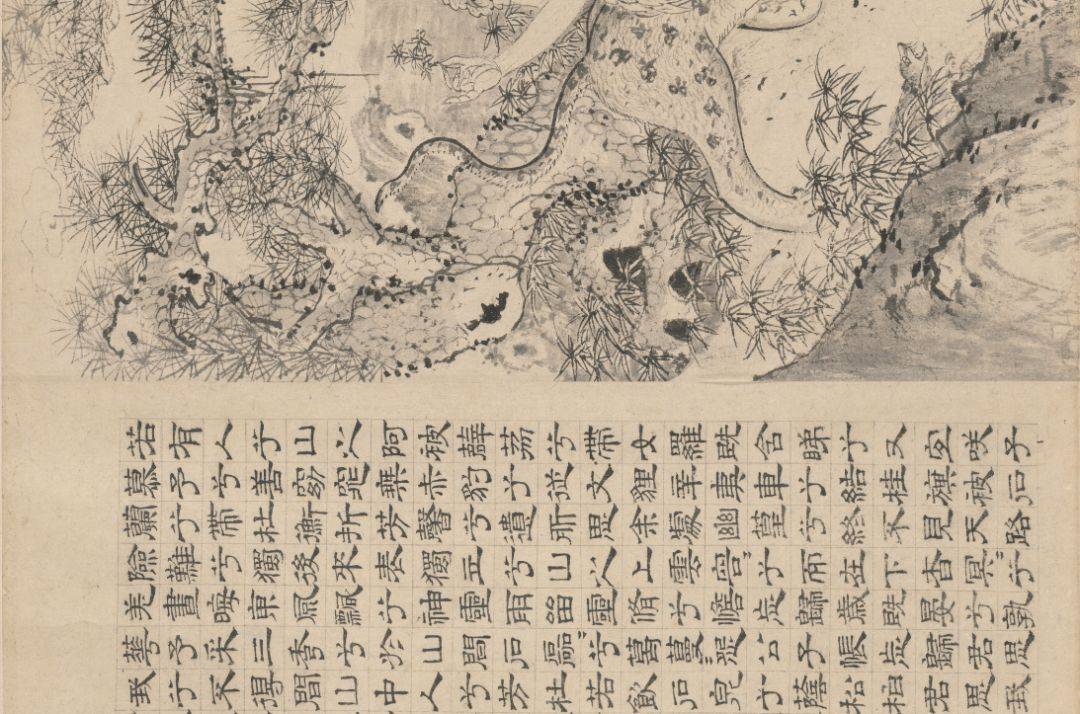 若有人兮山之阿被薜荔兮帶女羅既含睇兮又宜笑子
慕予兮善窈窕乘赤豹兮從文貍辛夷車兮結桂旗被石
蘭兮帶杜衡折芳馨兮遺所思余處幽篁兮終不見天路
險難兮獨後來表獨立兮山之上雲容〃兮而在下杳冥〃兮
羌晝晦兮東風飄兮神靈雨留靈脩兮憺忘歸歲既晏兮孰
華予兮采三秀兮於山間石磊〃兮葛蔓〃怨公子悵忘歸君思
我兮不得間山中人兮芳杜若飲石泉兮蔭松柏君思我